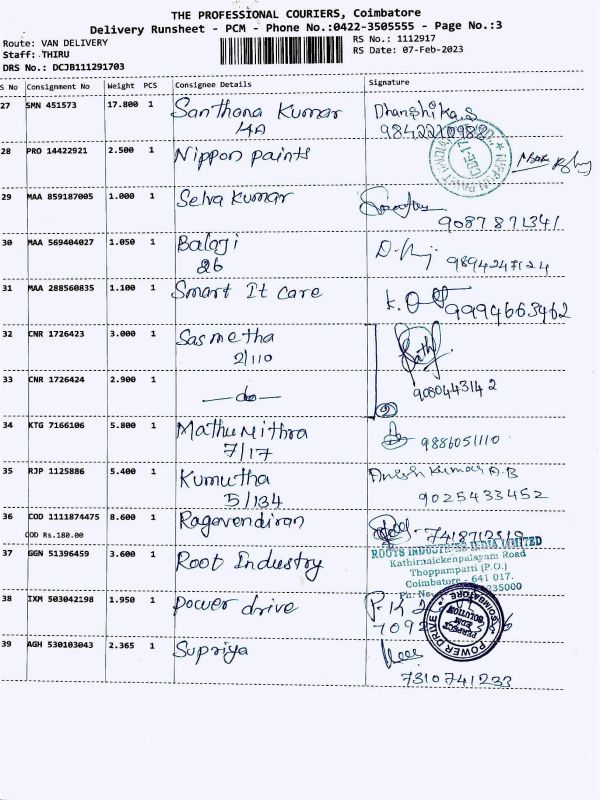 THE PROFESSIONAL COURIERS, Coimbatore
Delivery Runsheet - PCM - Phone No.:0422-3505555 - Page No.:3
Route: VAN DELIVERY
RS No.: 1112917
Staff: THIRU
RS Date: 07-Feb-2023
DRS No.: DCJB111291703
S No Consignment No Weight PCS Consignee Details Signature
27 SMN 451573 17.800 1 Santhana Kumar Dhanshika.S
4A
28 PRO 14422921 2.500 1 Nippon paints
29 MAA 859187005 1.000 1 Selva Kumar
9087871341
30 MAA 569404027 1.050 1 Balaji
26 9894247124
31 MAA 288560835 1.100 1 Smart It care
9994663462
32 CNR 1726423 3.000 1 Sasmetha
2/110
33 CNR 1726424 2.900 1 —do— 9080443142
2
34 KTG 7166106 5.800 1 Mathumithra
7/17 9886051110
35 RJP 1125886 5.400 1 Kumutha
5/134 9025433452
36 COD 1111874475 8.600 1 Ragavendiran
COD Rs.180.00
ROOTS INDUSTRIES INDIA LIMITED
37 GGN 51396459 3.600 1 Root Industry
Kathirnaickenpalayam Road
Thoppampatti (P.O.)
Coimbatore - 641 017.
Ph: No. 235000
38 IXM 503042198 1.950 1 power drive
POWER DRIVE COIMBATORE
PERFECT EDM SOLUTION
39 AGH 530103043 2.365 1 Supriya
7310741233